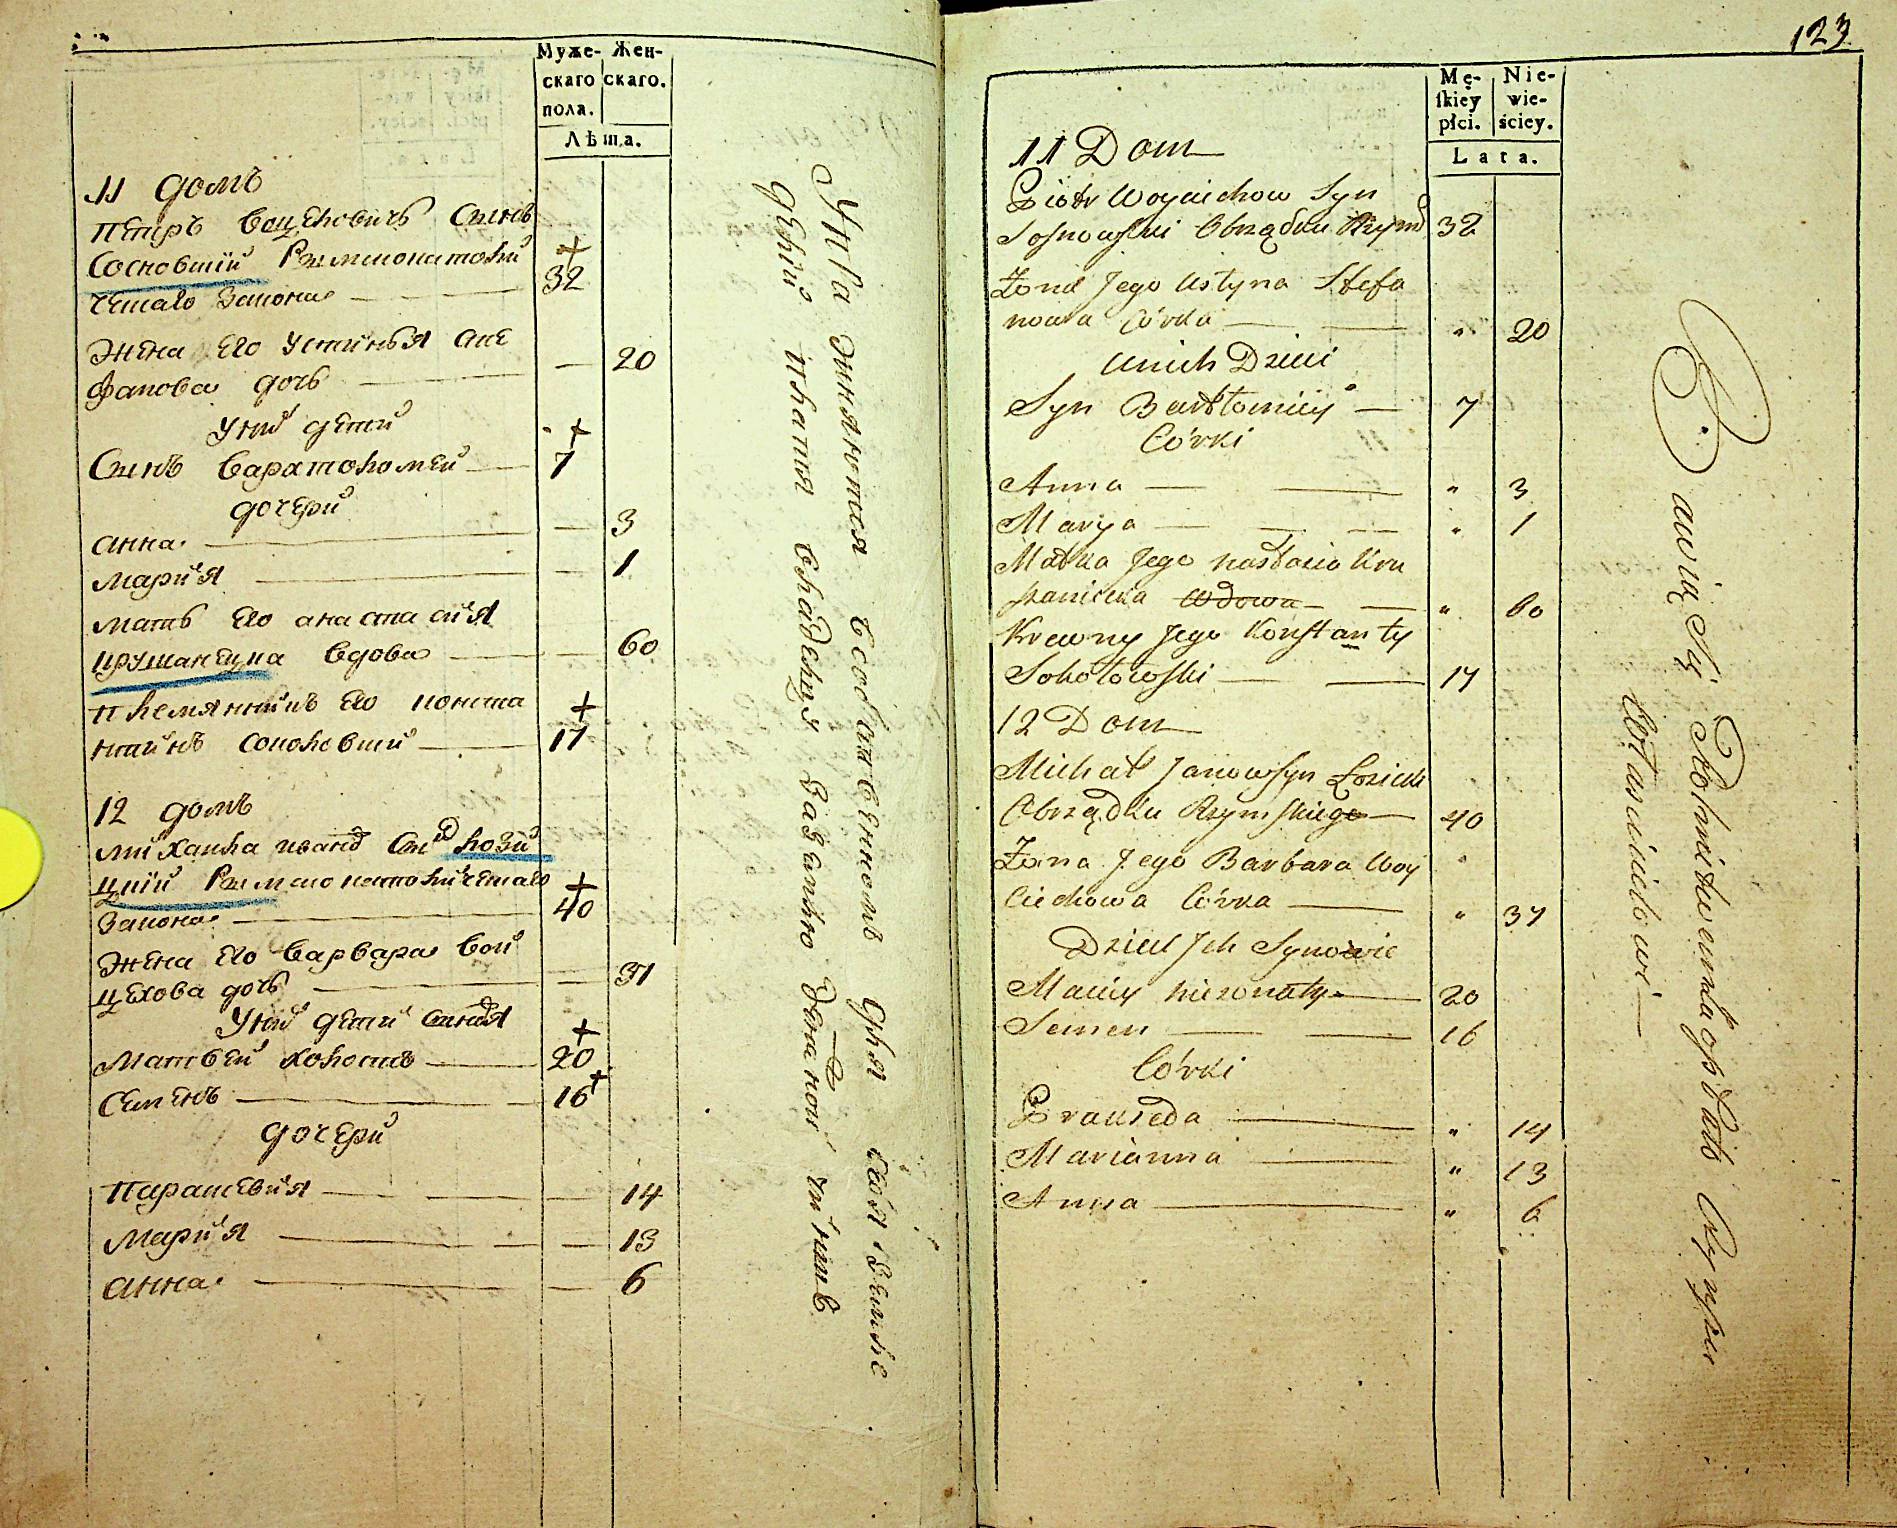 Муже- Жен-
скаго скаго.
пола.
Лѣта.
11 домъ
Петръ Войцеховичъ сынъ
Сосновский Римшокатоли
ческаго Закона — 32
Жена Его Устинья Сте
фанова дочь — 20
У них дети
Сынъ Варатоломей — 7
дочери
Анна — 3
Мария — 1
Мать Его анастасия
Крушанецка вдова — 60
Племянникъ Его конста
нтинъ Соколовский — 17
12 домъ
Михайла Иванов Сын Лози
цкий Римшокатолическаго
Закона — 40
Жена Его Варвара Вой
цехова дочь — 37
У них дети Сыновя
Матвей холостъ — 20
Семенъ — 16
дочери
Парасковия — 14
Мария — 13
Анна — 6
123
Mę- Nie-
skiey wie-
płci. ściey.
Lata.
11 Dom
Piotr Woyciechow Syn
Sosnowski Obrządku Rzyms 32
Żona Jego Ustyna Stefa
nowa Córka — " 20
U nich Dzieci
Syn Bartłomiey — 7
Córki
Anna — " 3
Marya — " 1
Matka Jego nastazia Kru
szaniecka Wdowa — " 60
Krewny Jego Konstanty
Sokołowski — 17
12 Dom
Michał Janow Syn Łozicki
Obrządku Rzymskiego — 40
Żona Jego Barbara Woy
Ciechowa Córka — " 37
Dzieci Ich Synowie
Maciey nieżonaty — 20
Semen — 16
Córki
Praxeda — " 14
Marianna — " 13
Anna — " 6
Bawią się Rolnictwem